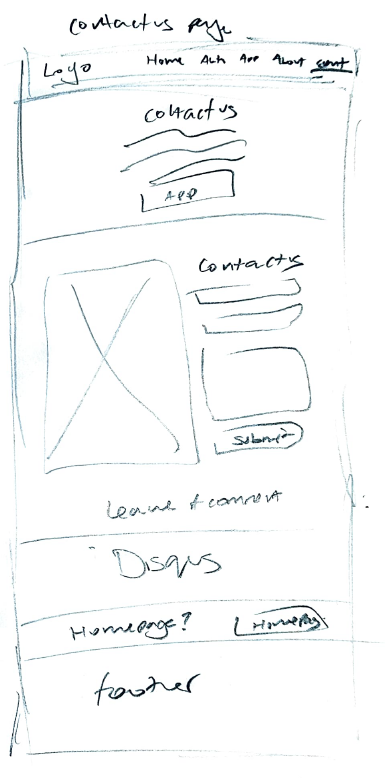 Contact us page
Logo Home Auth App About Cont
Contact us
App
Contact us
Submit
Leave a comment
Disqus
Homepage? Homepag
footer